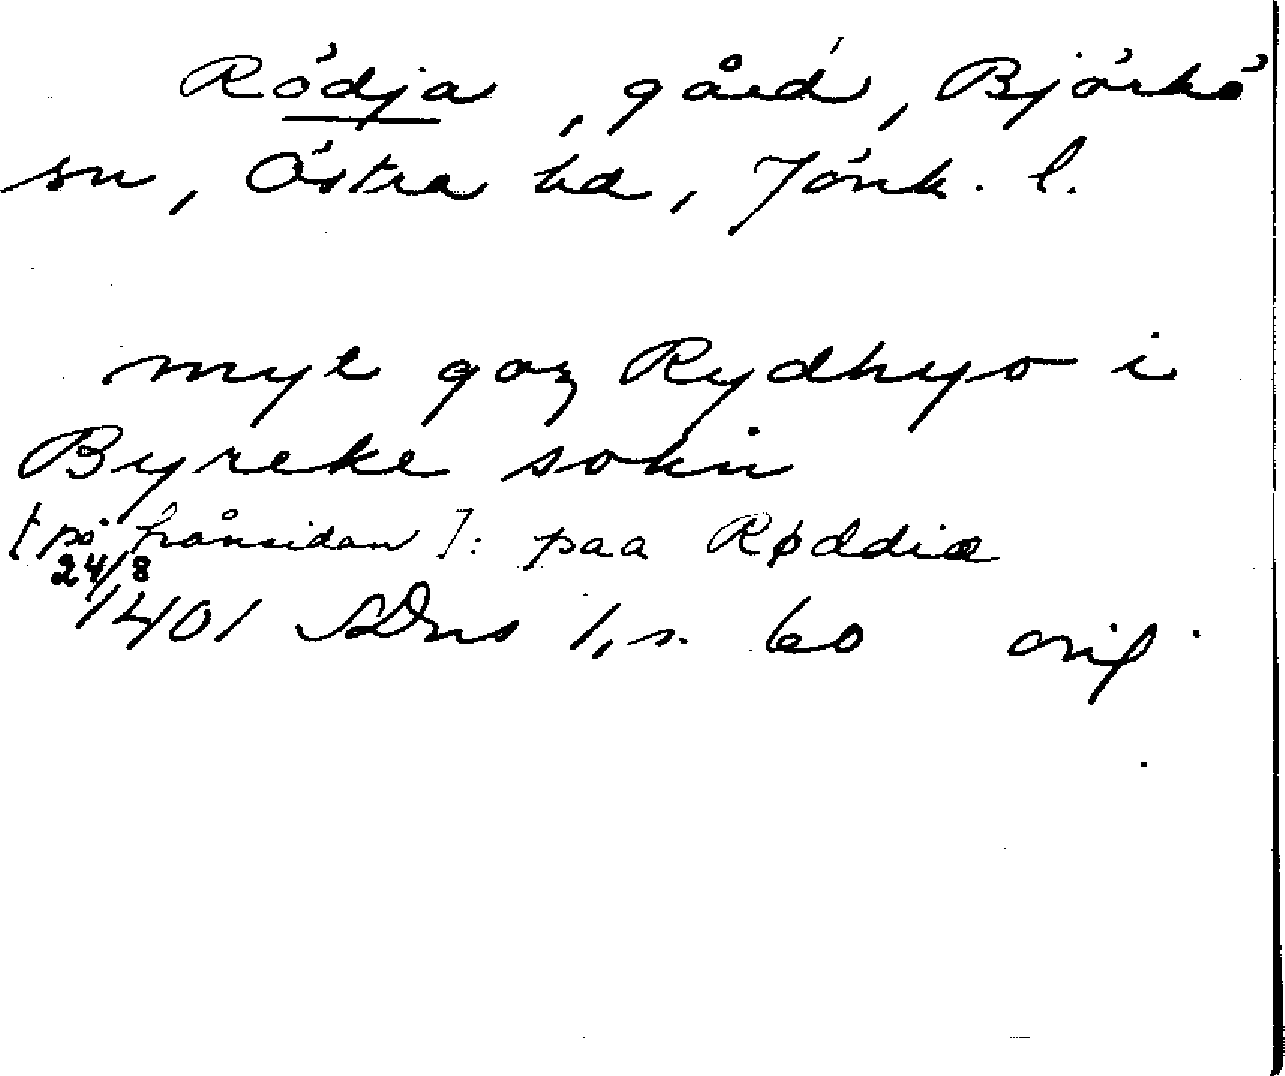 Rödja, gård, Björkö
sn, Östra hd, Jönk. l.
myt goz Rydhyo i
Byreke sokn
[på frånsidan]: paa Røddiæ
24/8
1401 SDns 1, s. 60 orig.